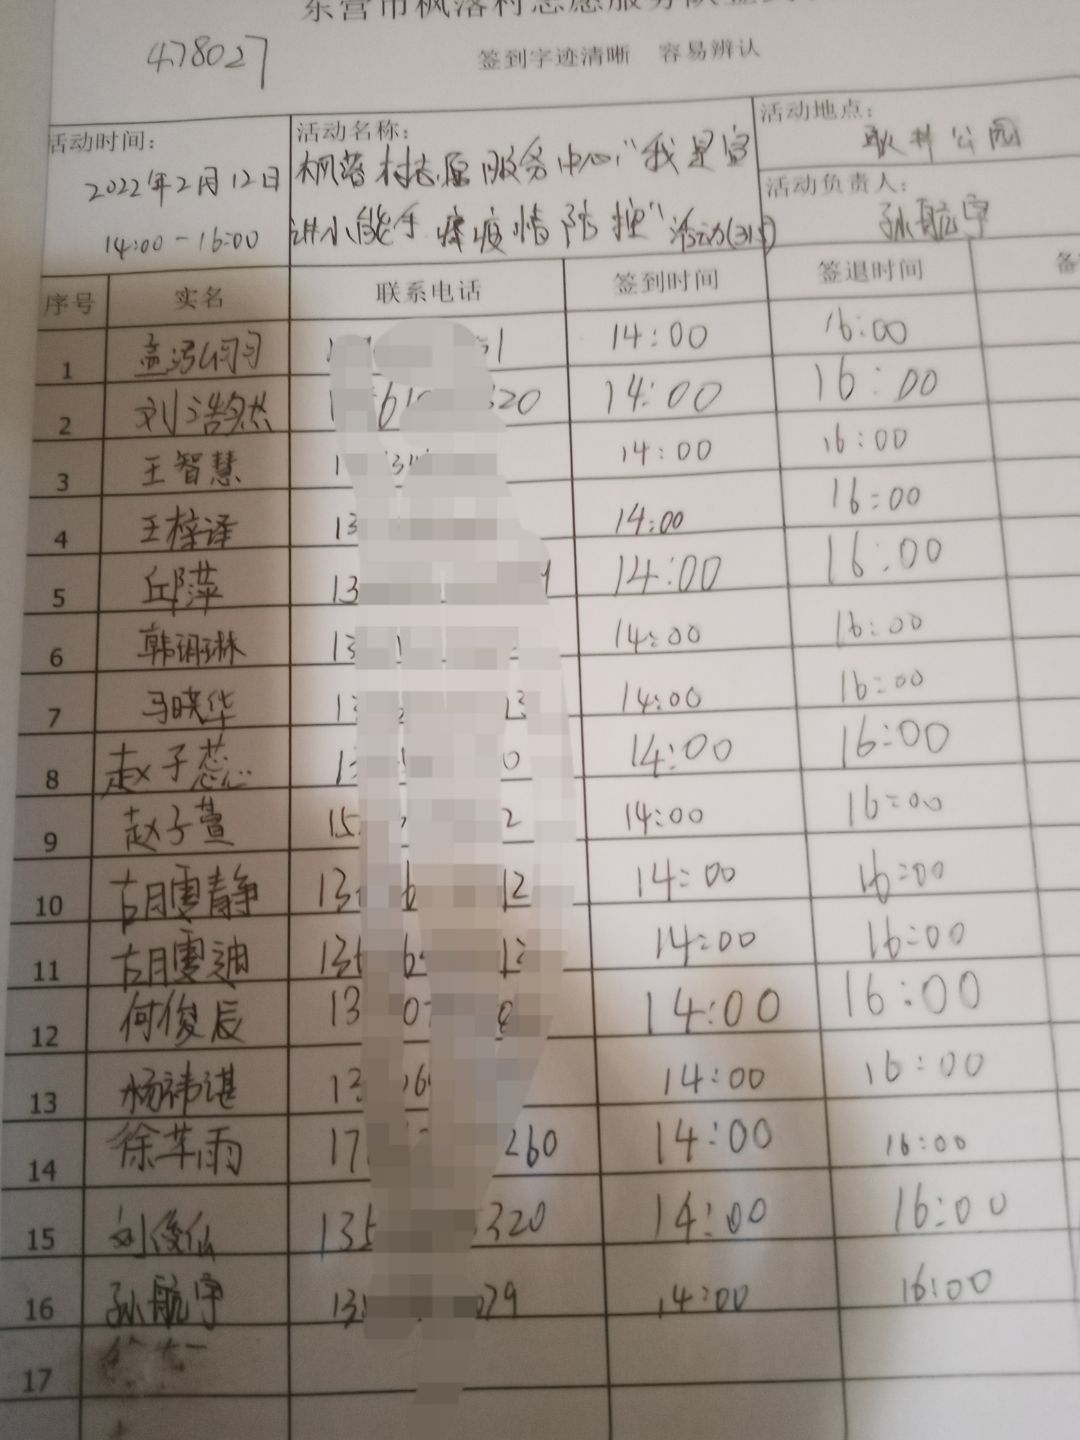 东营市枫落村志愿服务队签到
478027
签到字迹清晰 容易辨认
活动时间:
2022年2月12日
14:00-16:00
活动名称:
枫落村志愿服务中心,"我是宣
讲小能手 疫情防控"活动(315)
活动地点:
公园
活动负责人:
孙航宇
序号 实名 联系电话 签到时间 签退时间 备
1 孟 14:00 16:00
2 刘浩然 14:00 16:00
3 王智慧 14:00 16:00
4 王梓译 13 14:00 16:00
5 邱萍 13 14:00 16:00
6 韩玥琳 13 14:00 16:00
7 马晓华 13 14:00 16:00
8 赵子蕊 14:00 16:00
9 赵子萱 15 2 14:00 16:00
10 胡雯静 13 12 14:00 16:00
11 胡雯迪 14:00 16:00
12 何俊辰 13 14:00 16:00
13 杨祎谌 13 14:00 16:00
14 徐芊雨 17 260 14:00 16:00
15 刘俊仙 135 320 14:00 16:00
16 孙航宇 029 14:00 16:00
17